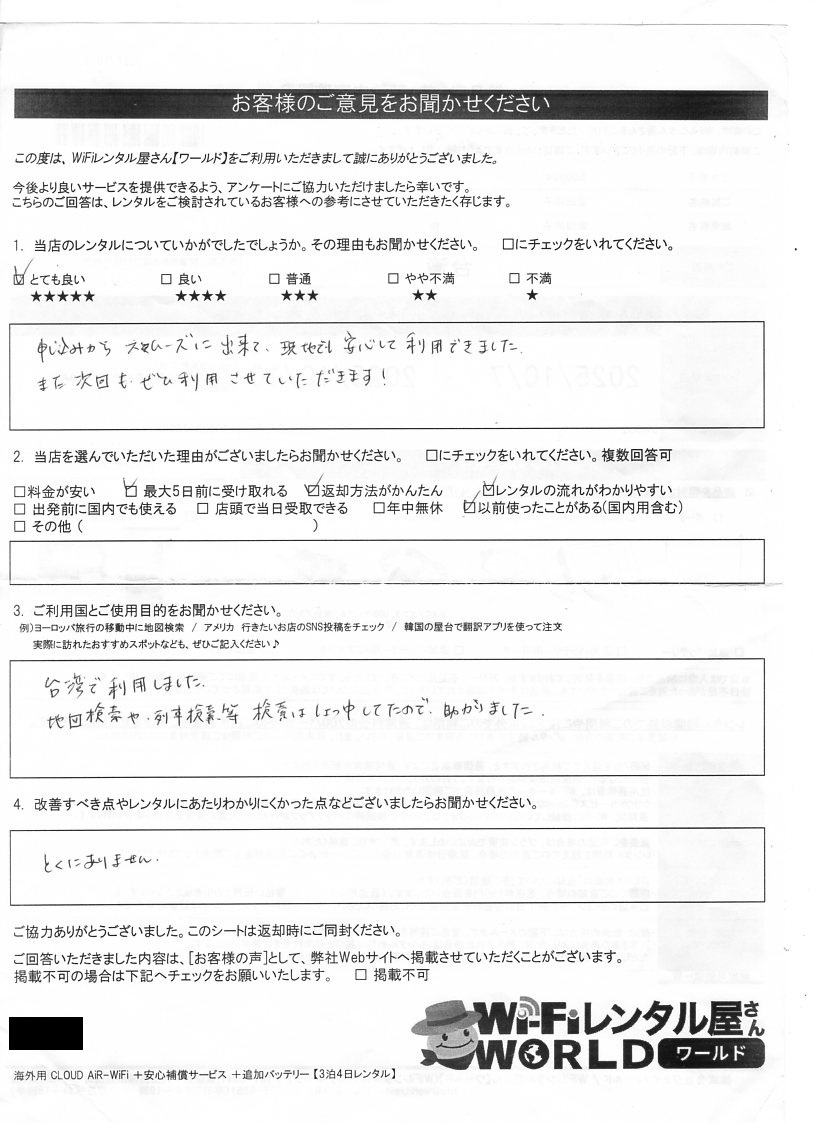 お客様のご意見をお聞かせください
この度は、WiFiレンタル屋さん【ワールド】をご利用いただきまして誠にありがとうございました。
今後より良いサービスを提供できるよう、アンケートにご協力いただけましたら幸いです。
こちらのご回答は、レンタルをご検討されているお客様への参考にさせていただきたく存じます。
1. 当店のレンタルについていかがでしたでしょうか。その理由もお聞かせください。 □にチェックをいれてください。
☑ とても良い □ 良い □ 普通 □ やや不満 □ 不満
★★★★★ ★★★★ ★★★ ★★ ★
申し込みから スムーズに 出来て、現地でも 安心して 利用できました。
また 次回も ぜひ利用 させていただきます!
2. 当店を選んでいただいた理由がございましたらお聞かせください。 □にチェックをいれてください。複数回答可
□料金が安い ☑ 最大5日前に受け取れる ☑返却方法がかんたん ☑レンタルの流れがわかりやすい
□ 出発前に国内でも使える □ 店頭で当日受取できる □年中無休 ☑以前使ったことがある(国内用含む)
□ その他 ( )
3. ご利用国とご使用目的をお聞かせください。
例)ヨーロッパ旅行の移動中に地図検索 / アメリカ 行きたいお店のSNS投稿をチェック / 韓国の屋台で翻訳アプリを使って注文
実際に訪れたおすすめスポットなども、ぜひご記入ください♪
台湾で 利用しました。
地図検索や、列車検索等 検索は しょっ中 してたので、助かりました。
4. 改善すべき点やレンタルにあたりわかりにくかった点などございましたらお聞かせください。
とくにありません。
ご協力ありがとうございました。このシートは返却時にご同封ください。
ご回答いただきました内容は、[お客様の声]として、弊社Webサイトへ掲載させていただくことがございます。
掲載不可の場合は下記へチェックをお願いいたします。 □ 掲載不可
Wi-Fiレンタル屋さん
WORLD ワールド
海外用 CLOUD AiR-WiFi +安心補償サービス +追加バッテリー【3泊4日レンタル】